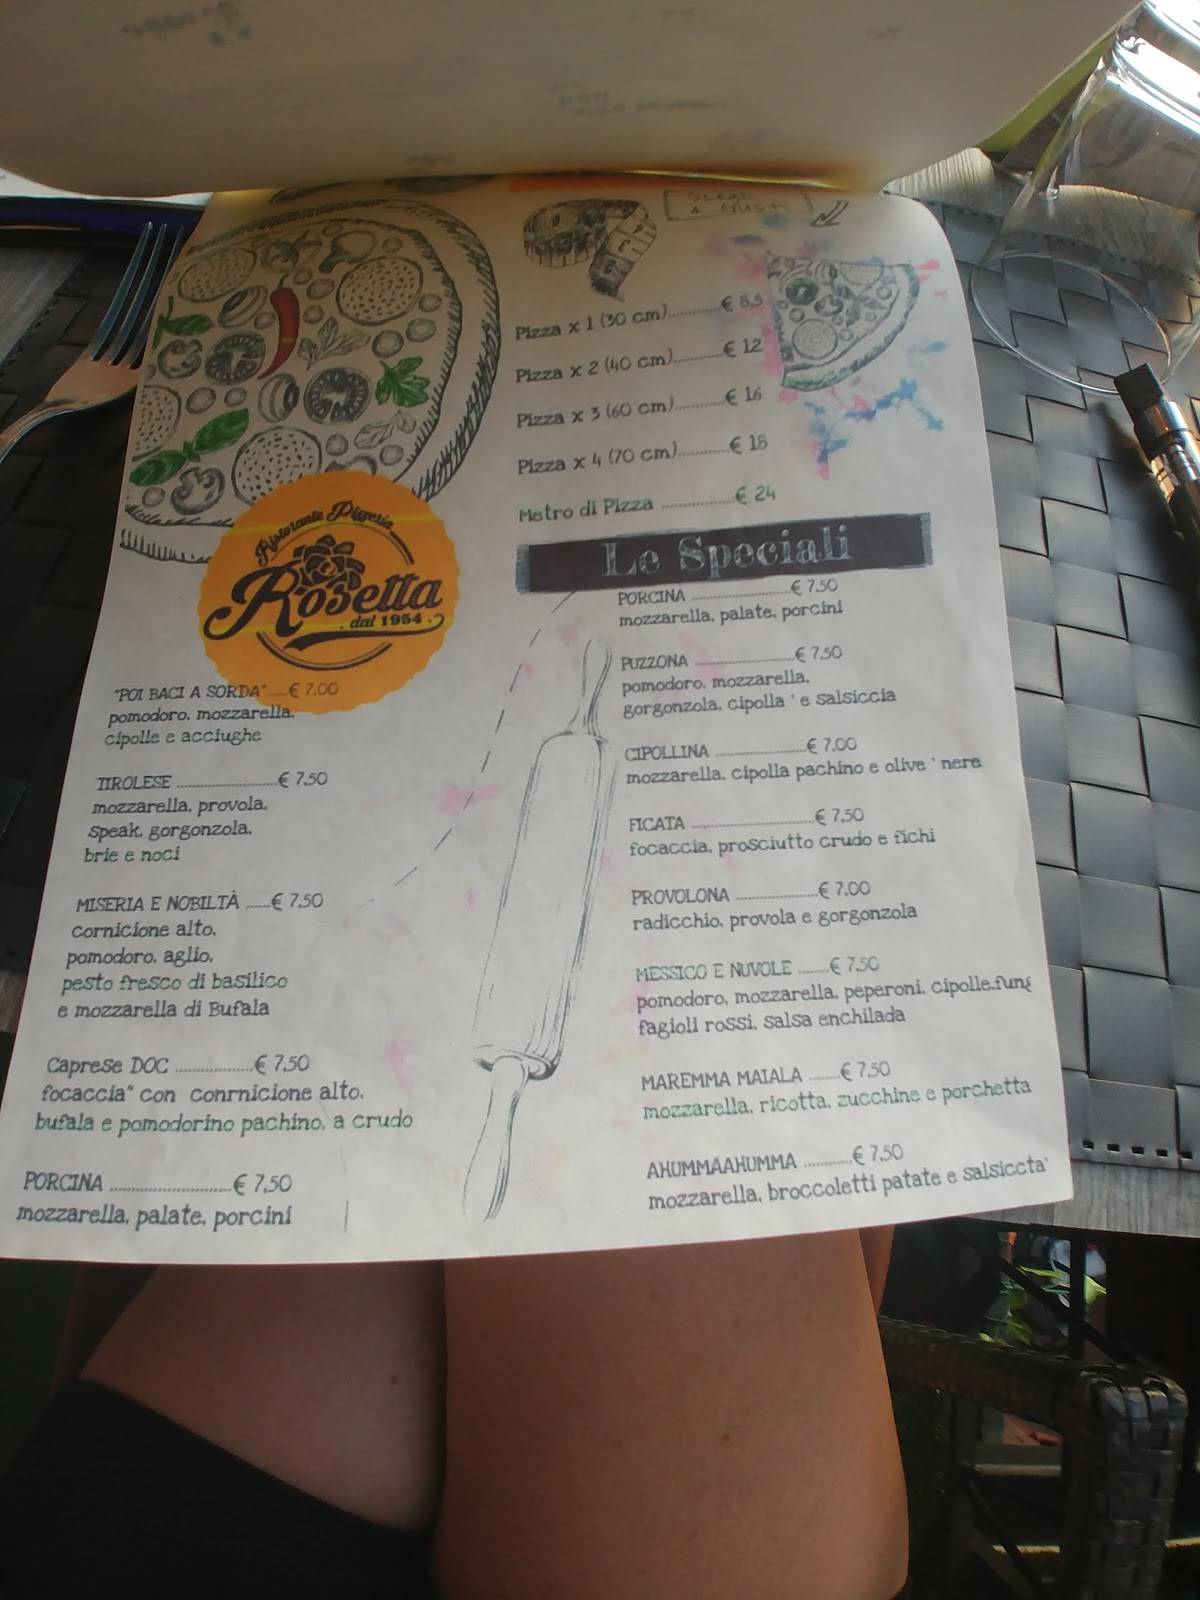 Scegli
4 Gusti
Pizza x 1 (30 cm)..........€ 8,5
Pizza x 2 (40 cm)..........€ 12
Pizza x 3 (60 cm)..........€ 16
Pizza x 4 (70 cm)..........€ 18
Metro di Pizza ...............€ 24
Ristorante Pizzeria
Rosetta
dal 1954
"POI BACI A SORDA"....€ 7.00
pomodoro, mozzarella,
cipolle e acciughe
TIROLESE ......................€ 7,50
mozzarella, provola,
speak, gorgonzola,
brie e noci
MISERIA E NOBILTÀ .....€ 7,50
cornicione alto,
pomodoro, aglio,
pesto fresco di basilico
e mozzarella di Bufala
Caprese DOC .................€ 7,50
focaccia" con conrnicione alto,
bufala e pomodorino pachino, a crudo
PORCINA ..........................€ 7,50
mozzarella, palate, porcini
Le Speciali
PORCINA ......................€ 7,50
mozzarella, palate, porcini
PUZZONA ......................€ 7,50
pomodoro, mozzarella,
gorgonzola, cipolla ' e salsiccia
CIPOLLINA ....................€ 7,00
mozzarella, cipolla pachino e olive ' nere
FICATA ...........................€ 7,50
focaccia, prosciutto crudo e fichi
PROVOLONA ..................€ 7,00
radicchio, provola e gorgonzola
MESSICO E NUVOLE .......€ 7,50
pomodoro, mozzarella, peperoni, cipolle,fung
fagioli rossi, salsa enchilada
MAREMMA MAIALA .......€ 7,50
mozzarella, ricotta, zucchine e porchetta
AHUMMAAHUMMA ...........€ 7,50
mozzarella, broccoletti patate e salsiccta'